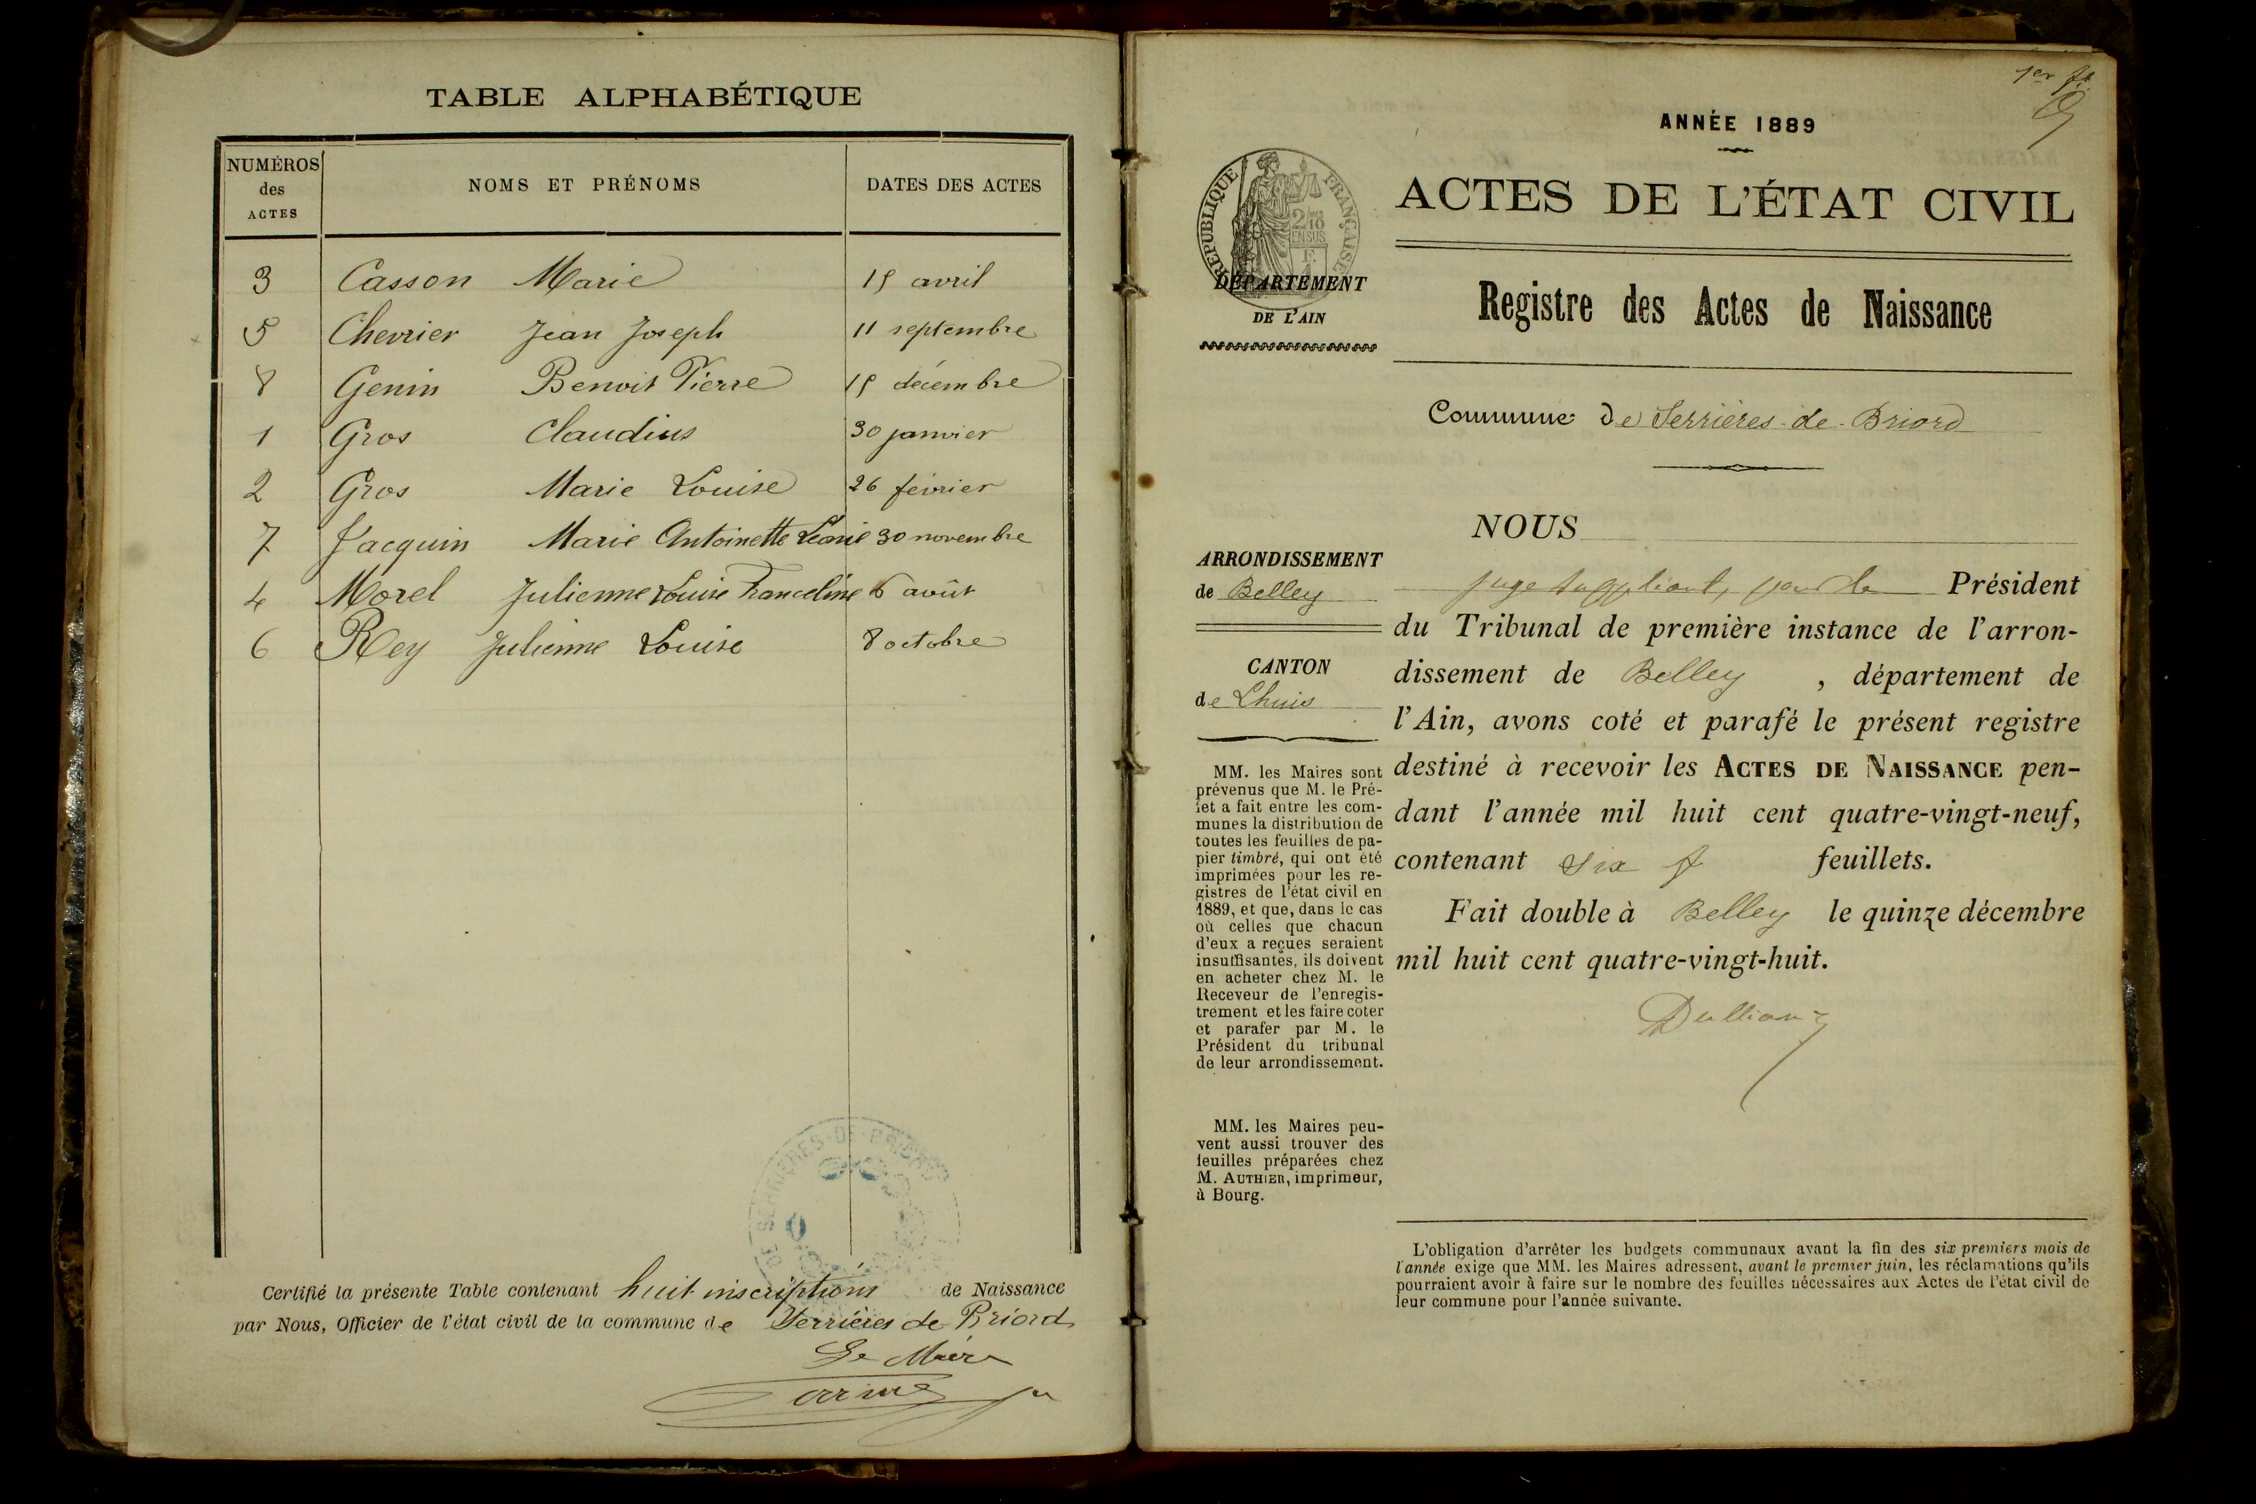 TABLE ALPHABÉTIQUE
NUMÉROS des ACTES NOMS ET PRÉNOMS DATES DES ACTES
3 Casson Marie 15 avril
5 Chevrier Jean Joseph 11 septembre
8 Genin Benoit Pierre 15 décembre
1 Gros Claudius 30 janvier
2 Gros Marie Louise 26 février
7 Jacquin Marie Antoinette Léonie 30 novembre
4 Morel Julienne Louise Franceline 6 août
6 Rey Julienne Louise 8 octobre
DE SERRIÈRES-DE-BRIORD
Certifié la présente Table contenant huit inscriptions de Naissance
par Nous, Officier de l'état civil de la commune de Serrières de Briord
Le Maire
1er ft.
ANNÉE 1889
ACTES DE L'ÉTAT CIVIL
RÉPUBLIQUE FRANÇAISE
2/10
EN SUS
DÉPARTEMENT
DE L'AIN
Registre des Actes de Naissance
Commune de Serrières-de-Briord
ARRONDISSEMENT
de Belley
CANTON
de Lhuis
MM. les Maires sont
prévenus que M. le Pré-
fet a fait entre les com-
munes la distribution de
toutes les feuilles de pa-
pier timbré, qui ont été
imprimées pour les re-
gistres de l'état civil en
1889, et que, dans le cas
où celles que chacun
d'eux a reçues seraient
insuffisantes, ils doivent
en acheter chez M. le
Receveur de l'enregis-
trement et les faire coter
et parafer par M. le
Président du tribunal
de leur arrondissement.
MM. les Maires peu-
vent aussi trouver des
feuilles préparées chez
M. AUTHIER, imprimeur,
à Bourg.
NOUS
juge suppléant, pour le Président
du Tribunal de première instance de l'arron-
dissement de Belley , département de
l'Ain, avons coté et parafé le présent registre
destiné à recevoir les ACTES DE NAISSANCE pen-
dant l'année mil huit cent quatre-vingt-neuf,
contenant six feuillets.
Fait double à Belley le quinze décembre
mil huit cent quatre-vingt-huit.
L'obligation d'arrêter les budgets communaux avant la fin des six premiers mois de
l'année exige que MM. les Maires adressent, avant le premier juin, les réclamations qu'ils
pourraient avoir à faire sur le nombre des feuilles nécessaires aux Actes de l'état civil de
leur commune pour l'année suivante.